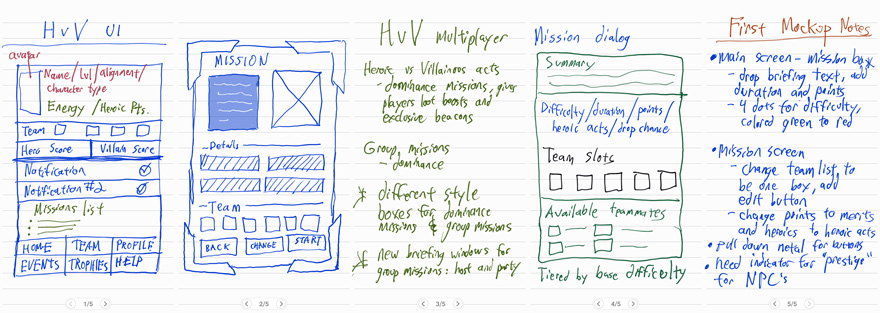 HvV UI
avatar
Name/Lvl/alignment/
Character type
Energy / Heroic Pts.
Team
Hero Score
Villain Score
Notification
Notification #2
Missions list
HOME
TEAM
PROFILE
EVENTS
TROPHIES
HELP
1/5
MISSION
Details
Team
BACK
CHANGE
START
2/5
HvV multiplayer
Heroic vs Villainous acts
- dominance missions, give
players loot boosts and
exclusive beacons
Group missions
- dominance
different style
boxes for dominance
missions & group missions
new briefing windows for
group missions: host and party
3/5
Mission dialog
Summary
Difficulty/duration/points/
heroic acts/drop chance
Team slots
Available teammates
Tiered by base difficulty
4/5
First Mockup Notes
• Main screen - mission box
- drop briefing text, add
duration and points
- 4 dots for difficulty,
colored green to red
• Mission screen
- change team list, to
be one box, add
edit button
- change points to merits
and heroics to heroic acts
• pull down metal for buttons
• need indicator for "prestige"
for NPC's
5/5